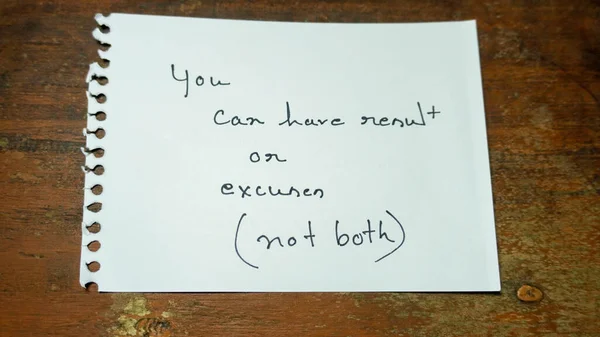 You
can have result
or
excuses
(not both)